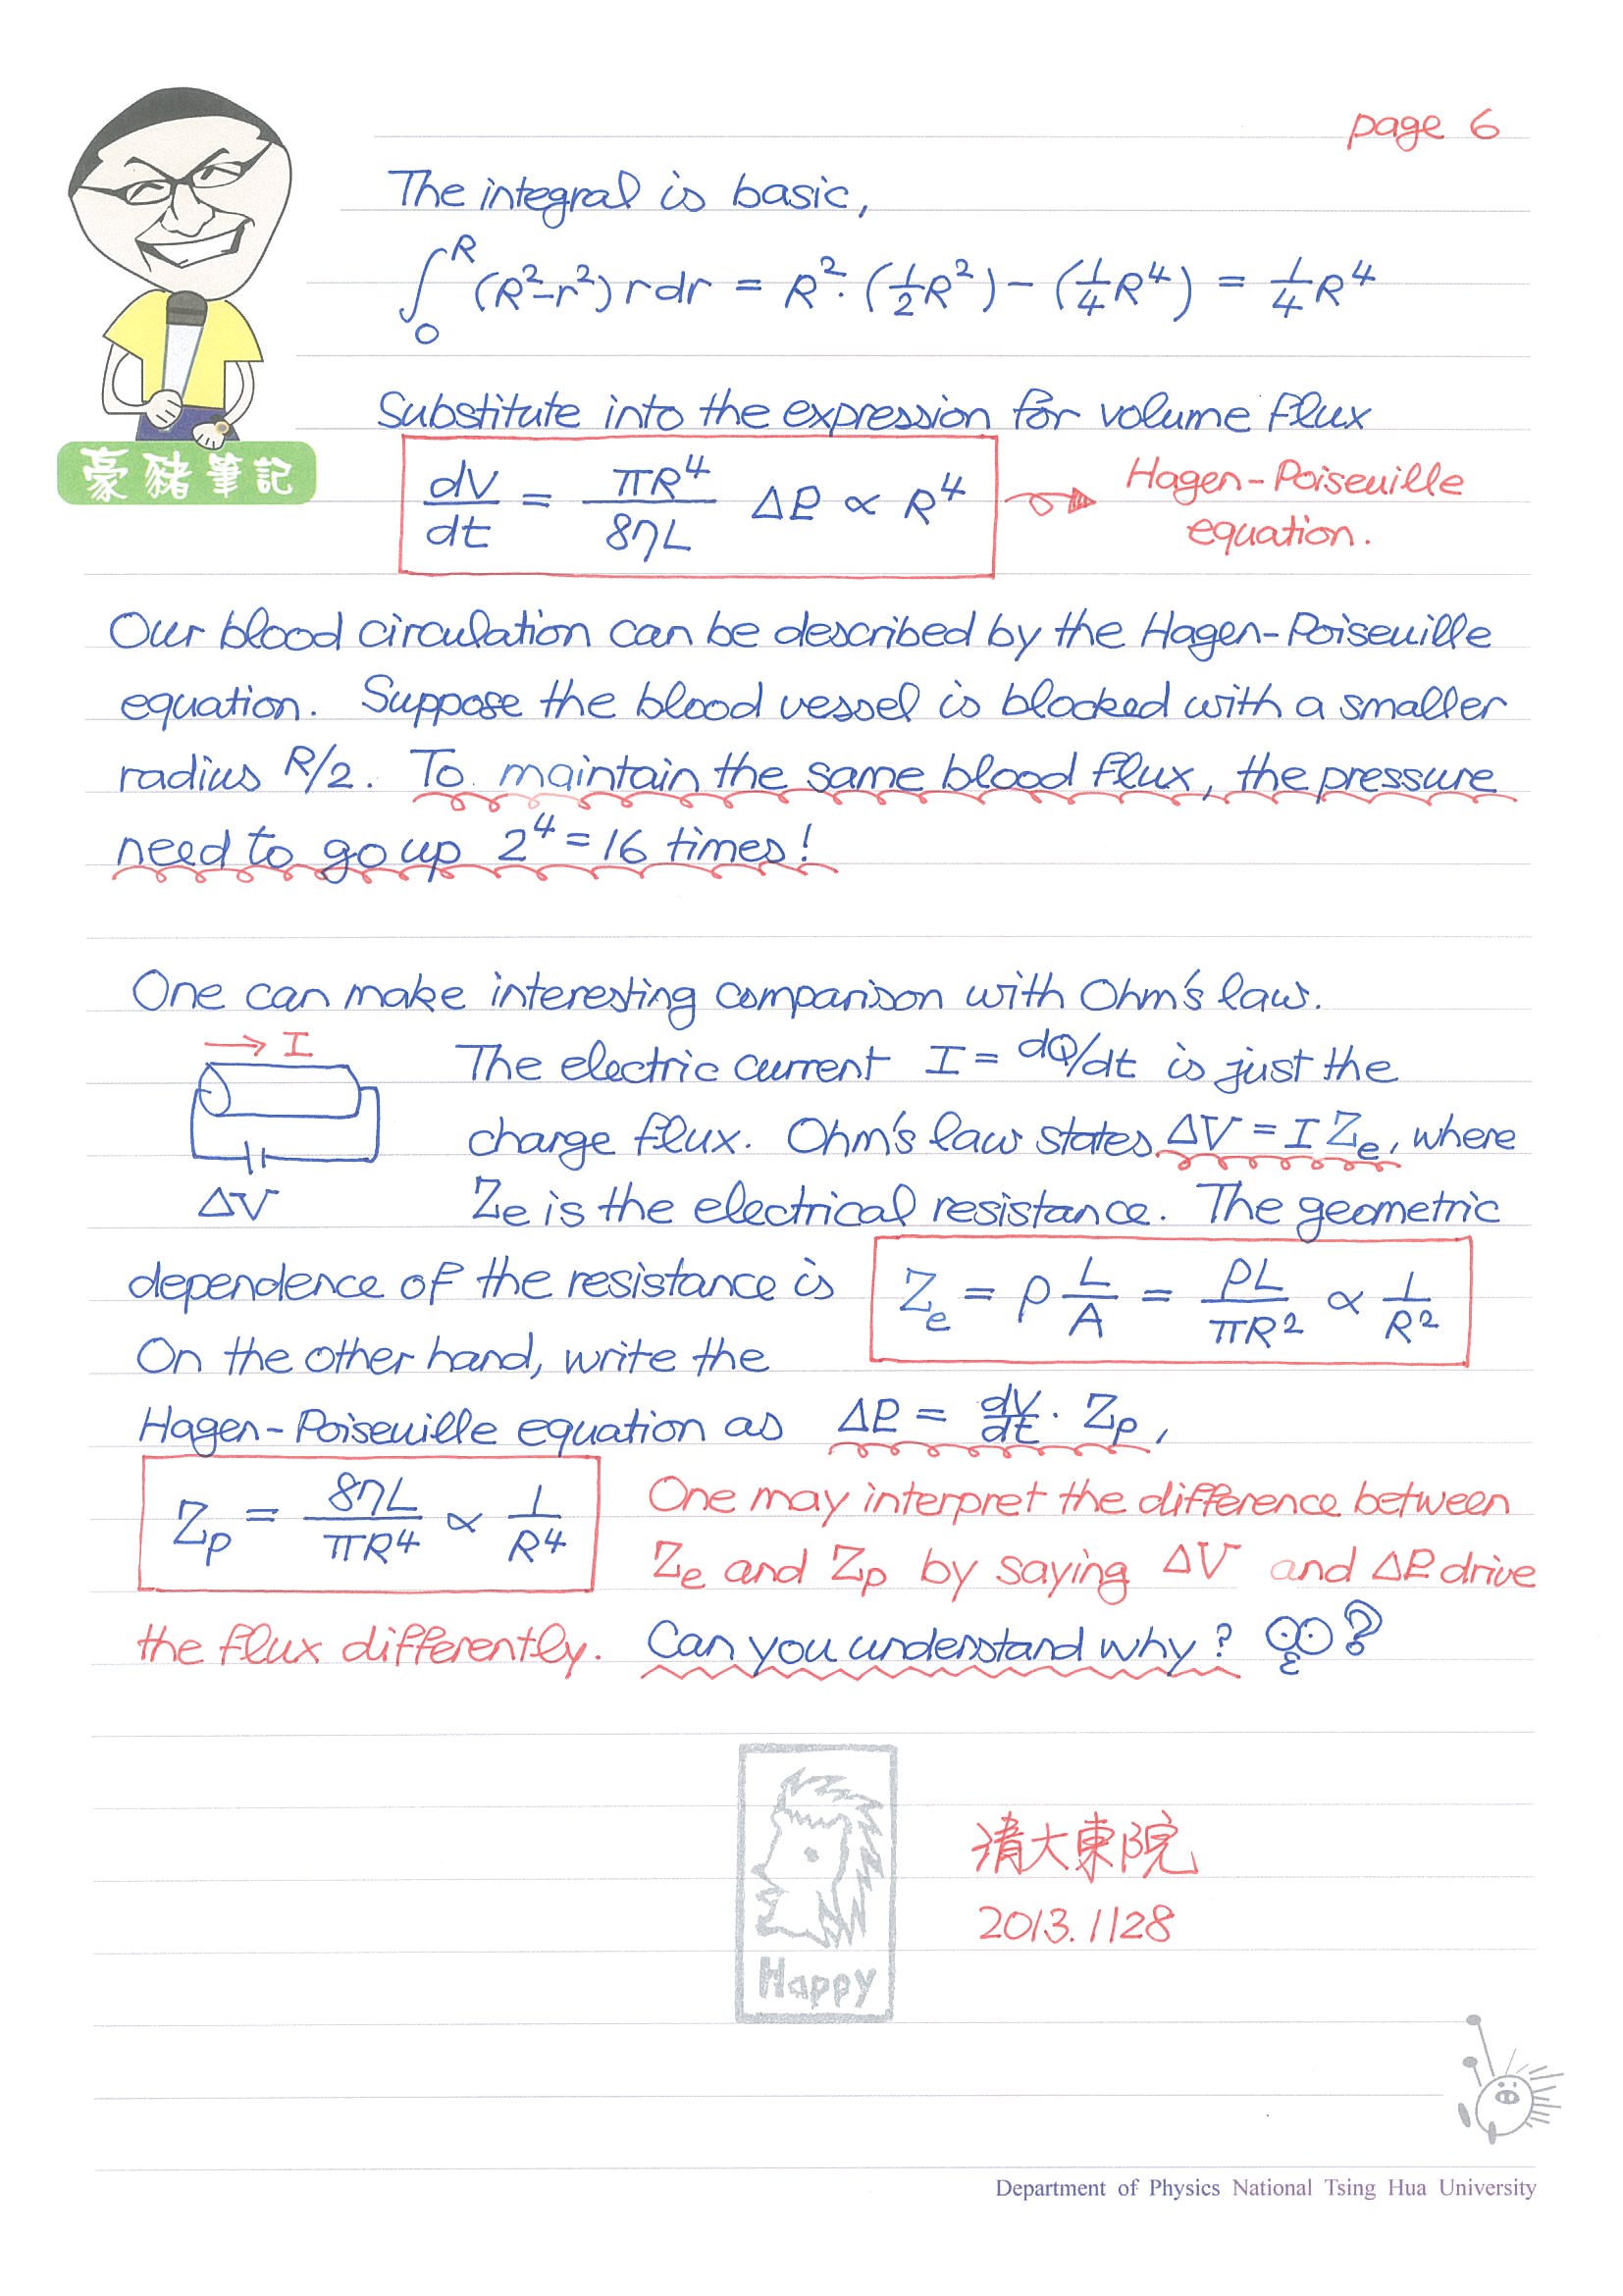 page 6
The integral is basic,
∫₀ᴿ (R²-r²) r dr = R²·(½R²) - (¼R⁴) = ¼R⁴
Substitute into the expression for volume flux
豪豬筆記
dV/dt = πR⁴/8ηL ΔP ∝ R⁴
Hagen-Poiseuille
equation.
Our blood circulation can be described by the Hagen-Poiseuille
equation. Suppose the blood vessel is blocked with a smaller
radius R/2. To maintain the same blood flux, the pressure
need to go up 2⁴=16 times!
One can make interesting comparison with Ohm's law.
→ I
ΔV
The electric current I = dQ/dt is just the
charge flux. Ohm's law states ΔV = I Zₑ, where
Zₑ is the electrical resistance. The geometric
dependence of the resistance is Zₑ = ρ L/A = ρL/πR² ∝ 1/R²
On the other hand, write the
Hagen-Poiseuille equation as ΔP = dV/dt · Zₚ,
Zₚ = 8ηL/πR⁴ ∝ 1/R⁴
One may interpret the difference between
Zₑ and Zₚ by saying ΔV and ΔP drive
the flux differently. Can you understand why? ?
清大東院
2013.1128
Happy
Department of Physics National Tsing Hua University